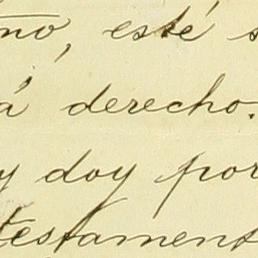 no, esté s
á derecho.
y doy por
testament